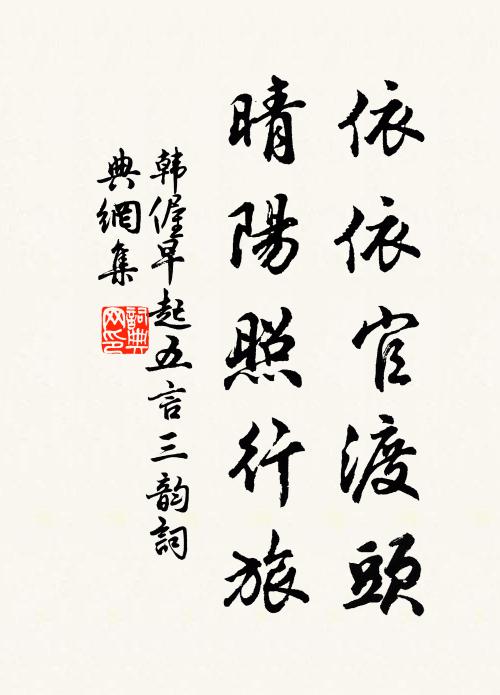 依依官渡頭
晴陽照行旅
韩偓早起五言三韵詞
典網集
詞典
网印